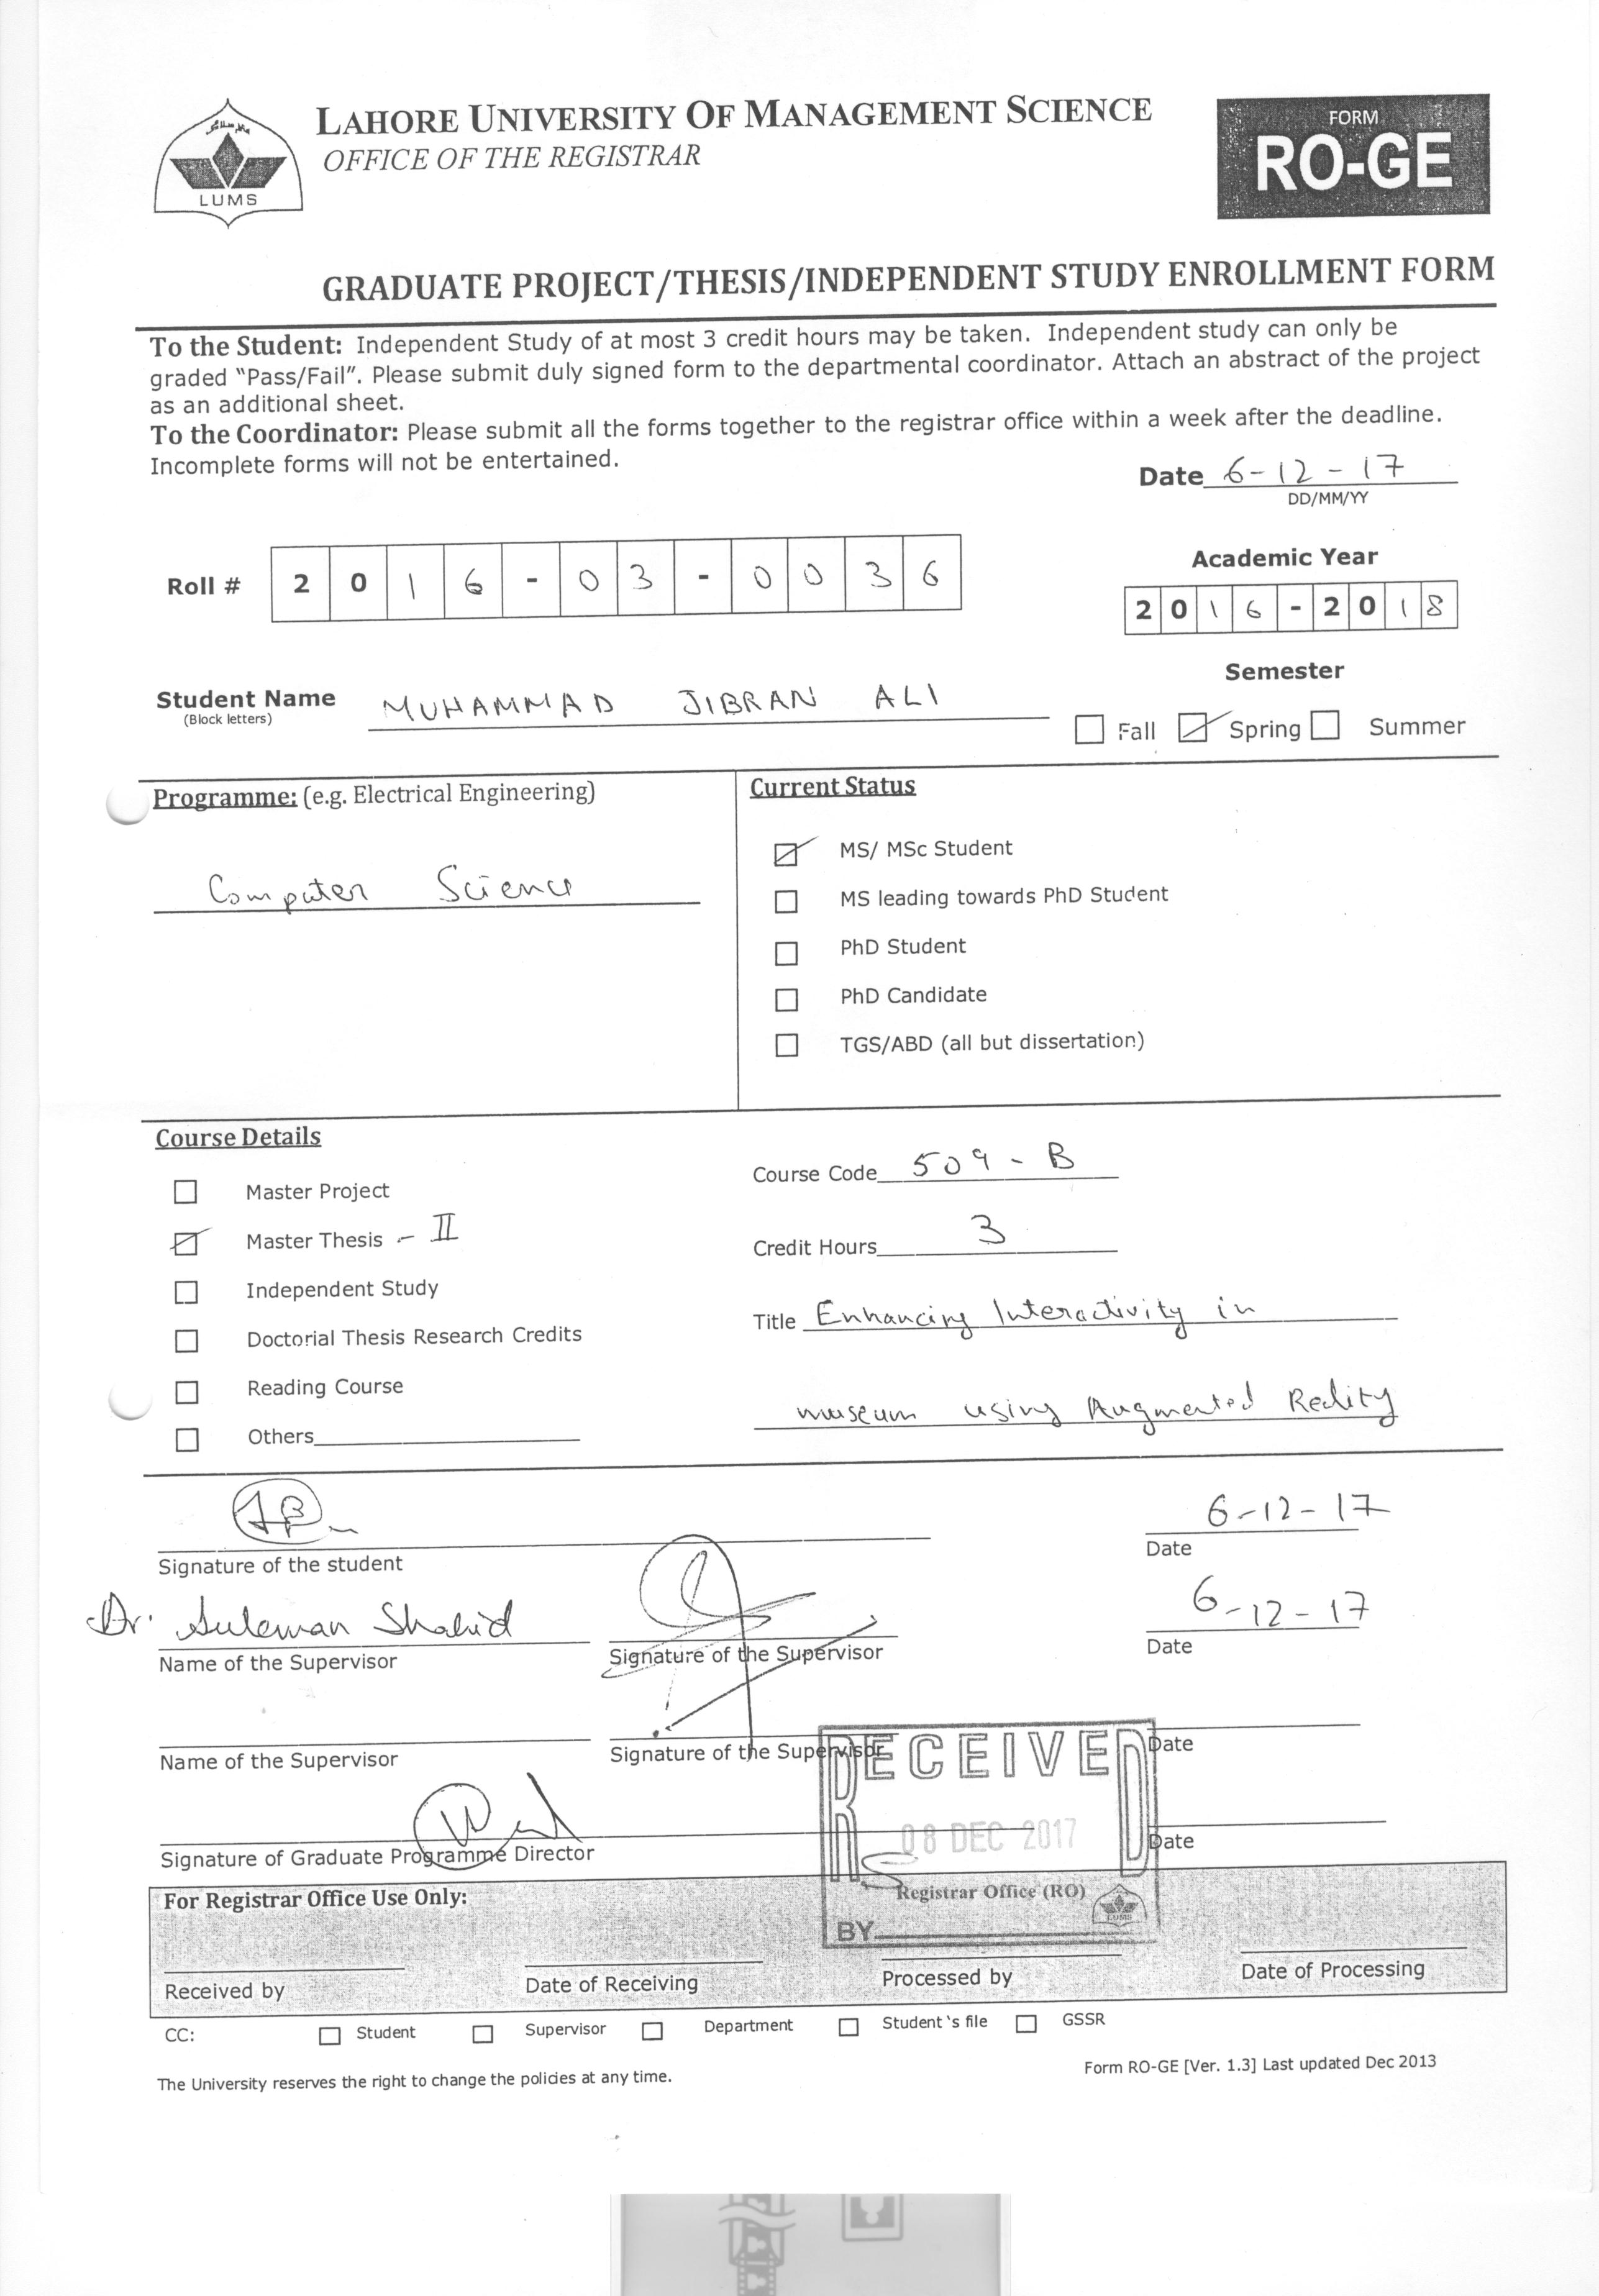 LUMS
LAHORE UNIVERSITY OF MANAGEMENT SCIENCE
OFFICE OF THE REGISTRAR
FORM
RO-GE
GRADUATE PROJECT/THESIS/INDEPENDENT STUDY ENROLLMENT FORM
To the Student: Independent Study of at most 3 credit hours may be taken. Independent study can only be
graded "Pass/Fail". Please submit duly signed form to the departmental coordinator. Attach an abstract of the project
as an additional sheet.
To the Coordinator: Please submit all the forms together to the registrar office within a week after the deadline.
Incomplete forms will not be entertained.
Date 6-12-17
DD/MM/YY
Roll # 2016-03-0036
Academic Year
2016-2018
Semester
Student Name MUHAMMAD JIBRAN ALI
(Block letters)
Fall Spring Summer
Programme: (e.g. Electrical Engineering)
Computer Science
Current Status
MS/ MSc Student
MS leading towards PhD Student
PhD Student
PhD Candidate
TGS/ABD (all but dissertation)
Course Details
Master Project
Master Thesis - II
Independent Study
Doctorial Thesis Research Credits
Reading Course
Others
Course Code 509-B
Credit Hours 3
Title Enhancing Interactivity in
museum using Augmented Reality
6-12-17
Signature of the student
Date
Dr. Suleman Shahid
6-12-17
Name of the Supervisor
Signature of the Supervisor
Date
Name of the Supervisor
Signature of the Supervisor
Date
RECEIVED
08 DEC 2017
Registrar Office (RO)
LUMS
BY
Signature of Graduate Programme Director
Date
For Registrar Office Use Only:
Received by
Date of Receiving
Processed by
Date of Processing
CC: Student Supervisor Department Student's file GSSR
The University reserves the right to change the policies at any time.
Form RO-GE [Ver. 1.3] Last updated Dec 2013